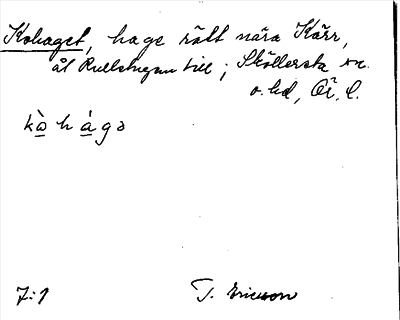 Kohaget, hage rätt nära Kärr,
åt Rullstugan till; Sköllersta sn.
o. hd, Ör. l.
kò̱hà̱gə
7:1 T. Ericsson